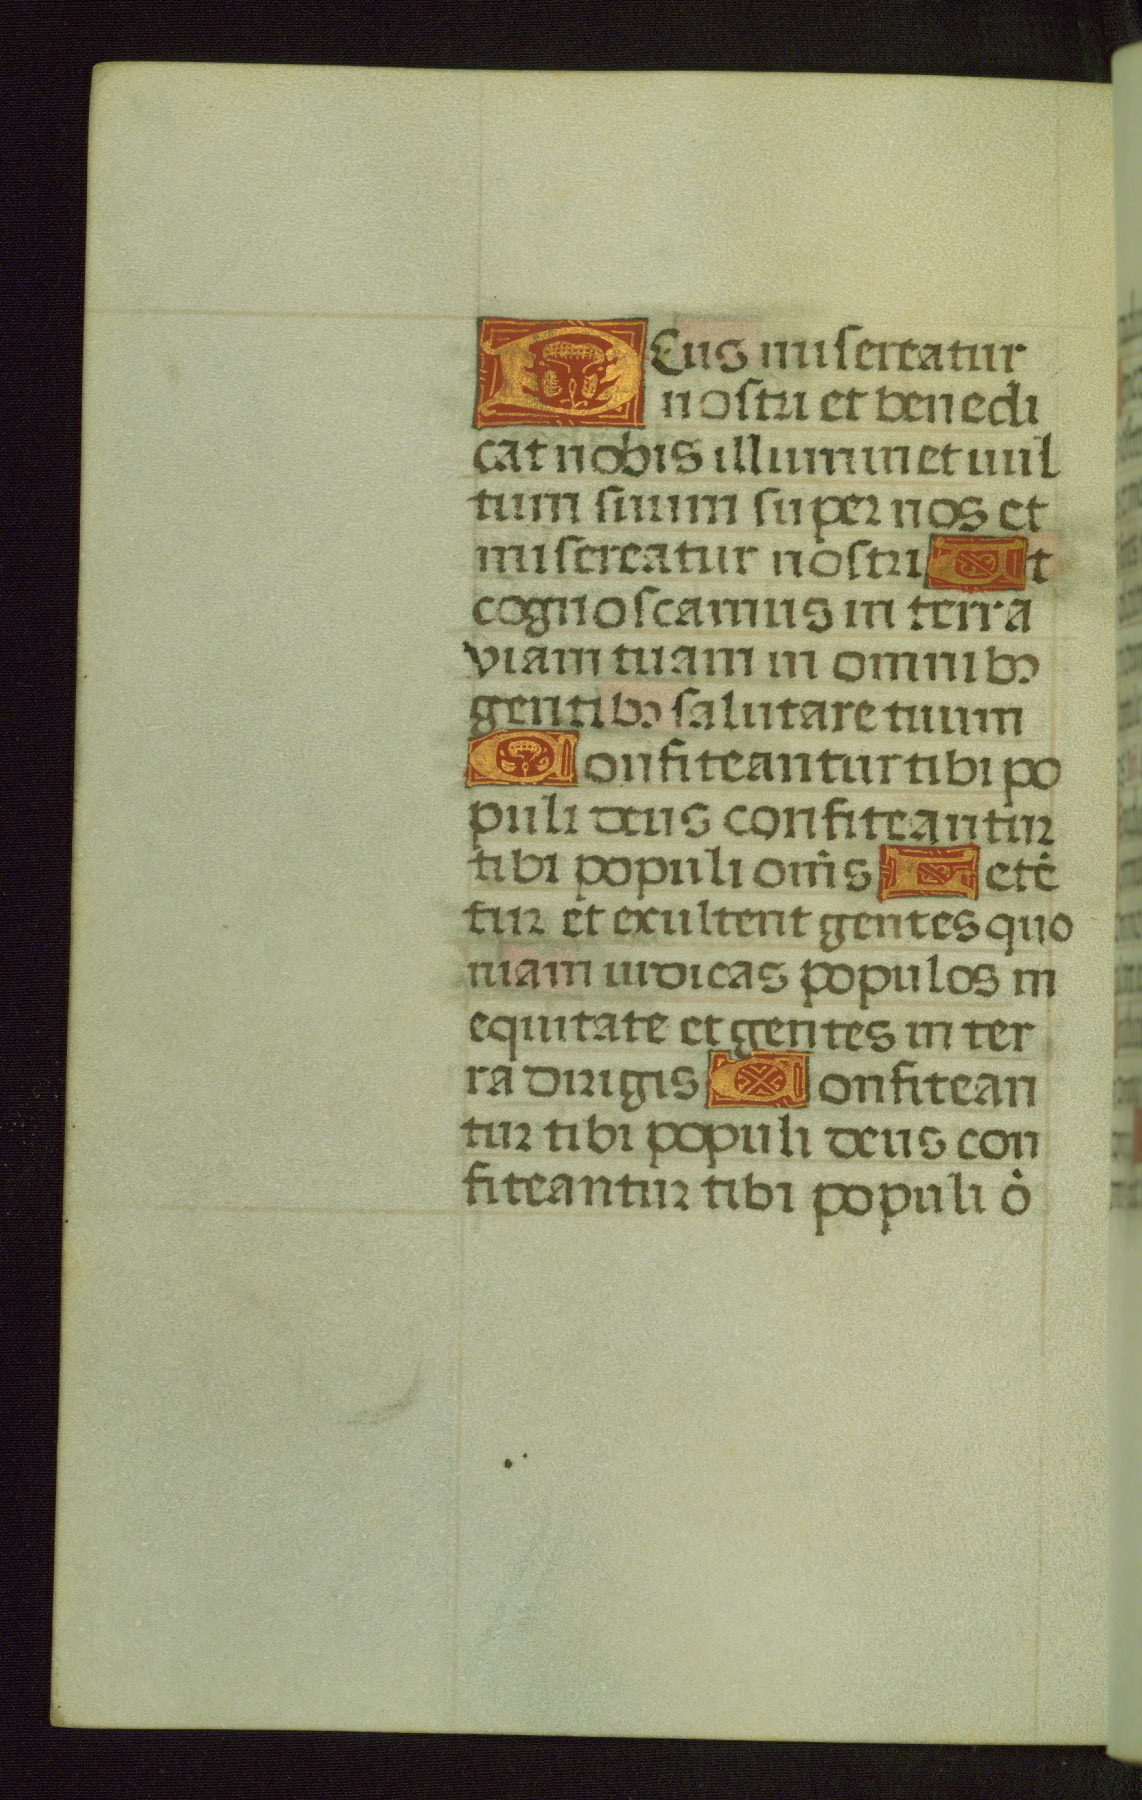 Deus misereatur
nostri et benedi
cat nobis illuminet uul
tum suum super nos et
misereatur nostri Ut
cognoscamus in terra
viam tuam in omnibꝫ
gentibꝫ salutare tuum
Confiteantur tibi po
puli deus confiteantur
tibi populi om̄s Letē
tur et exultent gentes quo
niam iudicas populos in
equitate et gentes in ter
ra dirigis Confitean
tur tibi populi deus con
fiteantur tibi populi ō